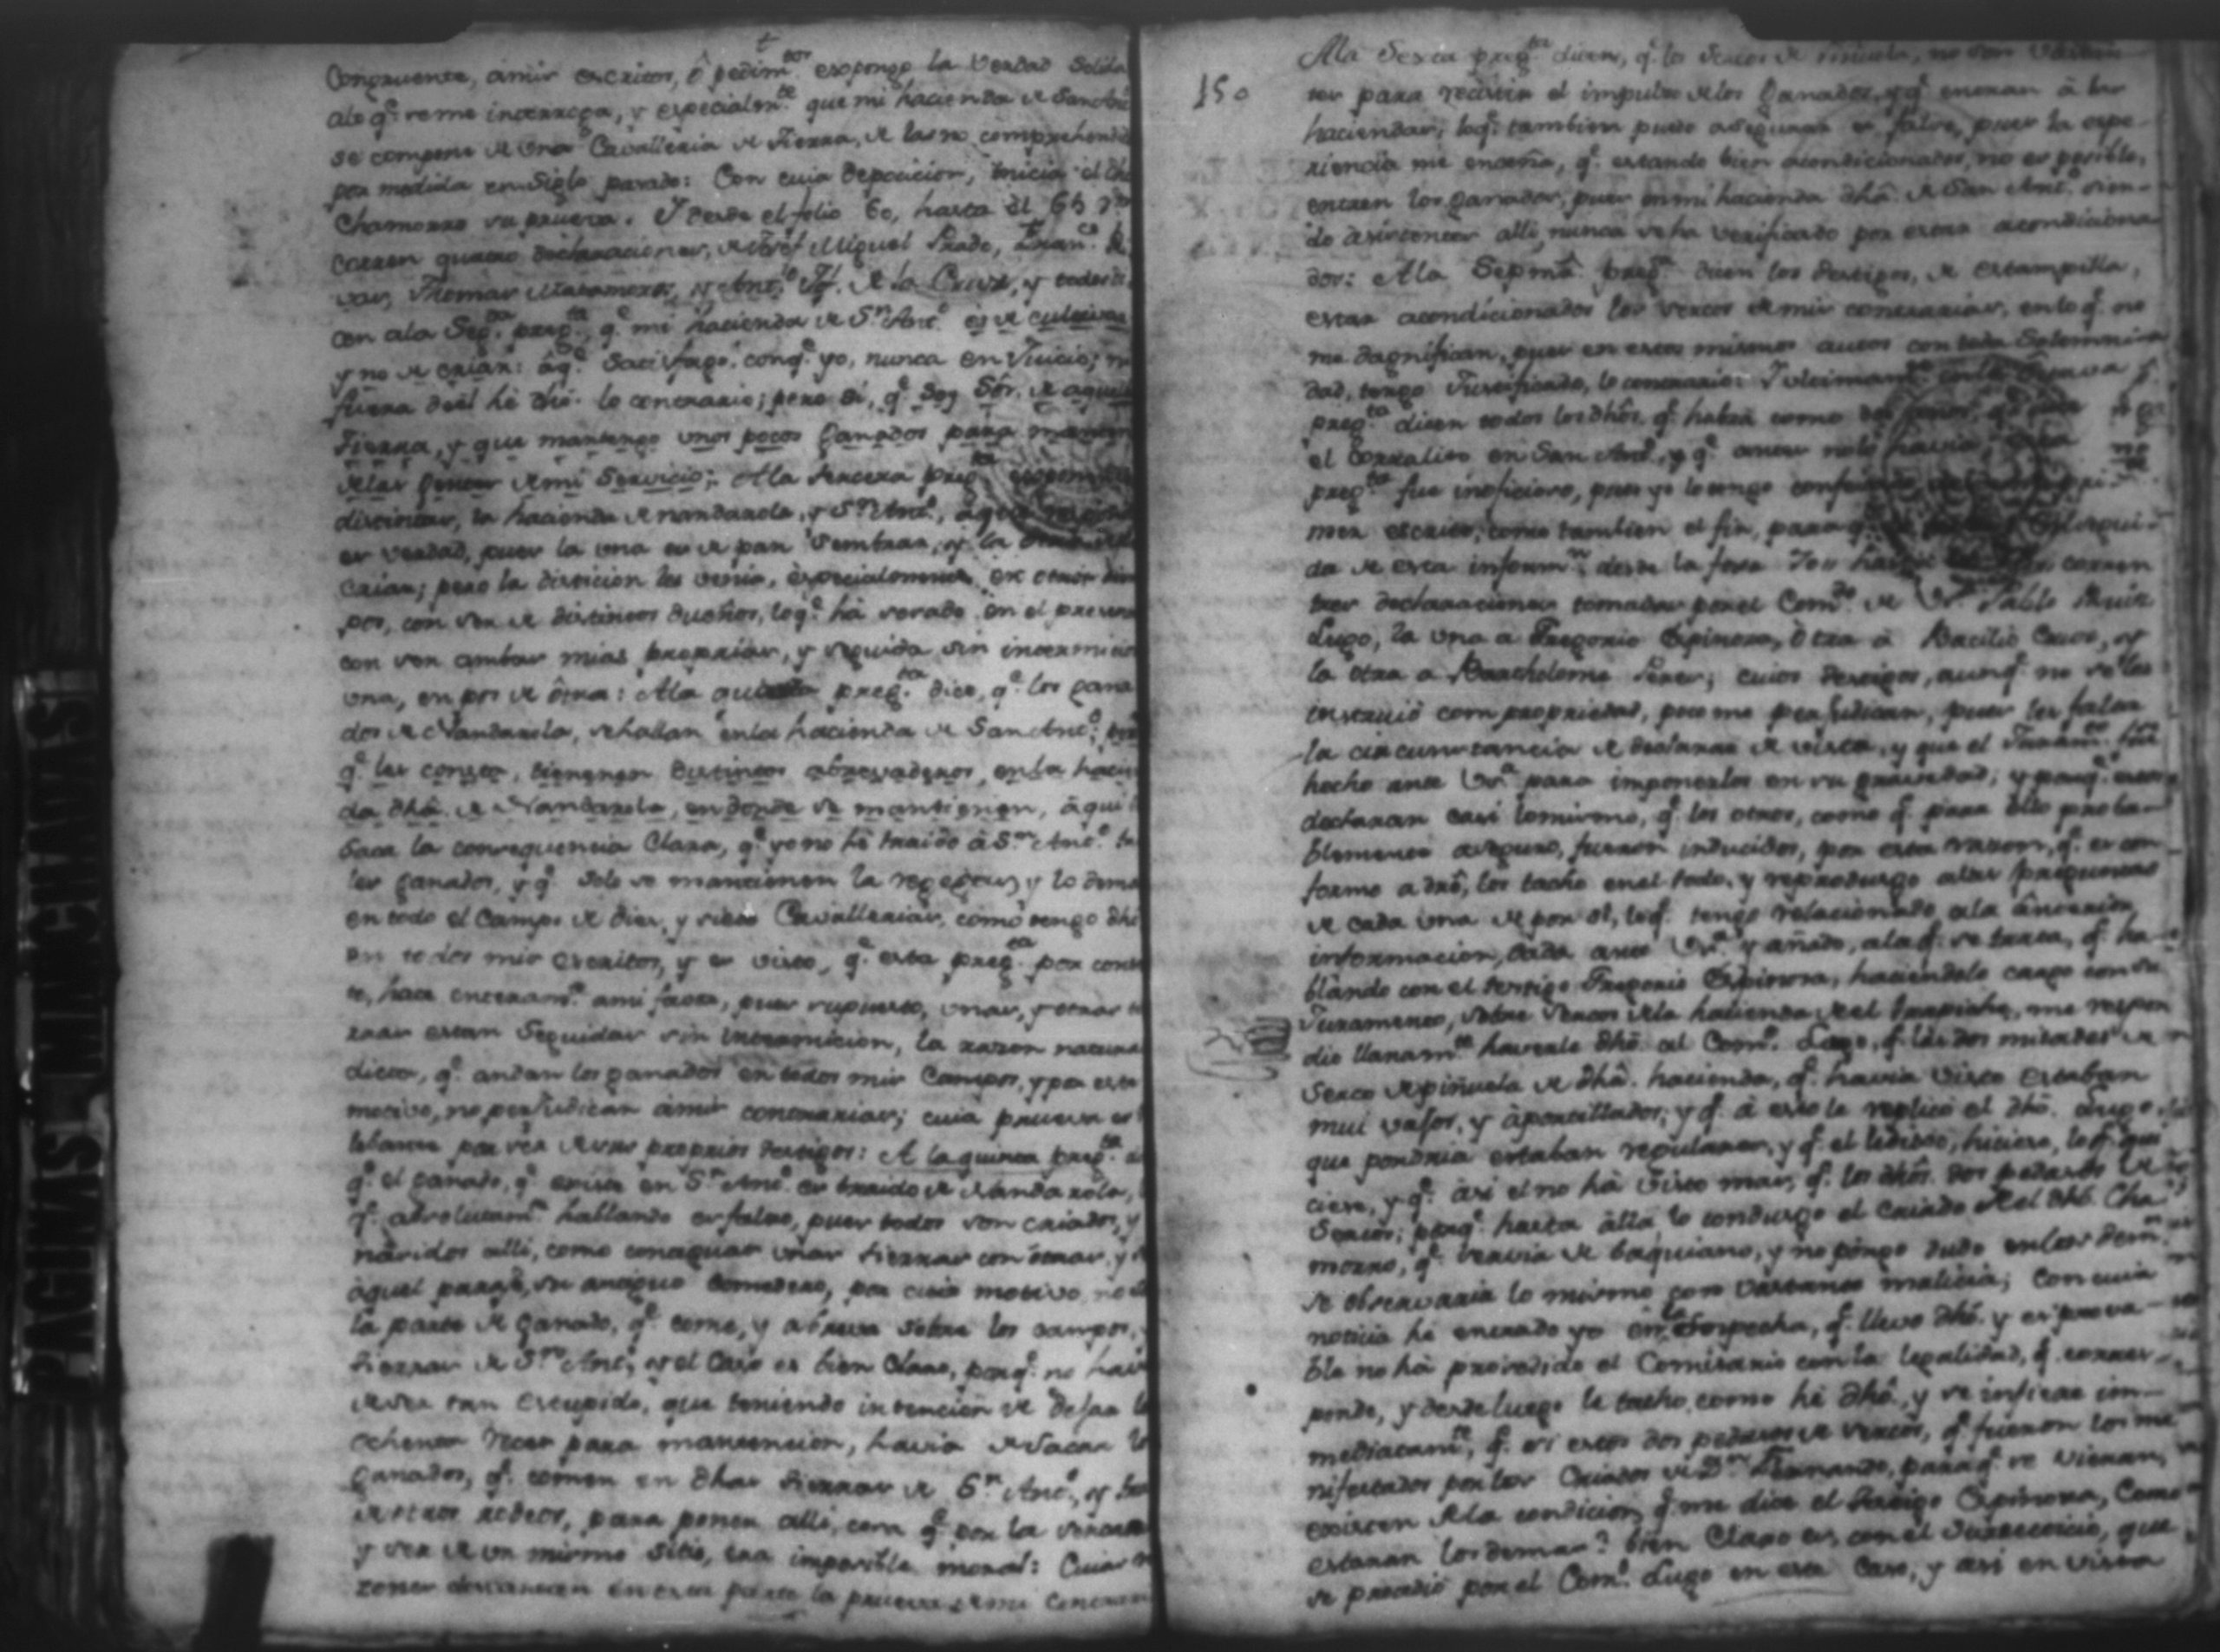 Congruente, amis escritos, ô pedim.tos expongo la Verdad Solida
alo q.e se me interroga, y especialm.te que mi hacienda de San Ant.o
se compone de una Cavalleria de tierra, de las no comprehendid
por medida en siglo pasado: Con cuia deposicion, inicia el dho
Chamorro su prueva. Y desde el folio 60, hasta el 65
corren quatro declaraciones, de Josef Miguel Prado, Fran.co
Thomas Matamoros, y Ant.o de la Cruz, y todos di
cen ala Seg.da preg.ta q.e mi hacienda de S.n Ant.o es de cultivar
y no de criar: âq.e Satisfago, conq.e yo, nunca en Juicio, ni
fuera del hê dho. lo contrario; pero si, q.e soy S.or de aquella
tierra, y que mantengo unos pocos Ganados para manten
de las gentes de mi Servicio; A la tercera preg.ta
distintas, la hacienda de nandarola, y S.n Ant.o, aque
es verdad, pues la una es de pan Sembrar, y la
Criar; pero la distincion les venia, especialmente en otros tiem
pos, con ser de distintos dueños, loq.e ha sesado en el presente
con ser ambas mias proprias, y seguida sin intermicion
una, en pos de ôtra: A la preg.ta dice, q.e los gana
dos de Nandarola, se hallan en la hacienda de San Ant.o
q.e les consta, tienenen distintos abrevaderos, en la hacien
da dhâ. de Nandarola, en donde se mantienen, âqui
Saca la consequencia Clara, q.e yo no hê traido â S.n Ant.o ta
les ganados, y q.e Solo se mantienen y lo demas
en todo el Campo de dies, y siete Cavallerias, como tengo dhô
en todos mis escritos, y es visto, q.e esta preg.ta por
hace enteram.te ami favor, pues supuesto, unas, y otras tie
rras estan Seguidas sin intermicion, la razon natural
dicta, q.e andan los ganados en todos mis Campos, y por este
motivo, no perjudican âmis contrarias; cuia prueva es
bastante por ser de sus proprios testigos: A la quinta preg.ta
q.e el ganado, q.e existe en S.n Ant.o es traido de Nandarola,
q.e absolutam.te hallando es falso, pues todos son criados, y
nacidos alli, como contiguas unas tierras con ôtras, y
aquel parage, su antiguo Comedero, por cuio motivo, no
la parte de ganado, q.e come, y abreva sobre los campos,
tierras de S.n Ant.o, y el Caso es bien Claro, porq.e no havia
de ser tan estupido, que teniendo intencion de dejar
ochenta reces para mantencion, havia de Sacar los
Ganados, q.e comen en dhas tierras de S.n Ant.o, y
de otros rodeos, para poner alli, cosa q.e por la
y ser de un mismo sitio, era imposible moral: Cuias ra
zones desvanecen en esta parte la prueva de mi Contraria
150
A la Sexta preg.ta dicen, q.e los Sercos de piñuela, no son bastan
tes para recivir el impulso de los Ganados, y q.e entran â las
haciendas; loq.e tambien puedo asegurar es falso, pues la expe
riencia me enseña, q.e estando bien acondicionados, no es posible,
entren los ganados, pues en mi hacienda dhâ. de San Ant.o sien
do âsistentes alli, nunca se ha verificado por estar acondiciona
dos: A la Septma. preg.ta dicen los testigos, de estampilla,
estar acondicionados los sercos de mis contrarias, en lo q.e no
me dagnifican, pues en estos mismos autos con toda Solemni
dad, tengo Justificado, lo contrario: Y ultimam.te
preg.ta dicen todos los dhôs. q.e habrá como dos
el Corralito en San Ant.o, y q.e antes no lo havia
preg.ta fue inoficioso, pues yo lo tengo
mer escrito, como tambien el fin, para q.e
da de esta inform.n desde la foxa 70 corren
tres declaraciones tomadas por el Com.do de Pablo Ruiz
Lugo, la una a Gregorio Espinosa, ôtra â Bacilio Cruz, y
la otra a Bartholome Peres; cuios testigos, aunq.e no se les
instruió con propriedad, poco me perjudican, pues les faltan
la circunstancia de declarar de vista, y que el Juram.to fue
hecho ante V. para imponerlos en su gravedad; y porq.e estos
declaran casi lo mismo, q.e los otros, como q.e para ello proba
blemente aseguro, fueron inducidos, por esta razon, q.e es con
forme a drô, los tacho en el todo, y reproduzgo alas preguntas
de cada una de por si, loq.e tengo relacionado ala ânterior
informacion, dada ante V. y añado, ala q.e se trata, q.e ha
blando con el testigo Gregorio Espinosa, haciendole cargo con su
Juramento, sobre Sercos de la hacienda del trapiche, me respon
dio llanam.te haverle dhô al Com.do Lugo, q.e las dos mitades de
Serco de piñuela de dhâ. hacienda, q.e havia visto estaban
mui vajos, y âportillados; y q.e â esto le replicó el dhô. Lugo,
que pondria estaban regulares, y q.e el hiciese, loq.e qui
ciese, y q.e âsi el no hâ visto mas, q.e los dhôs. dos pedazos de
Sercos; porq.e hasta âlla lo condugo el Criado del dhô. Cha
morro, q.e servia de baquiano, y no pongo duda en los demas
se observaria lo mismo con bastante malicia; con cuia
noticia hê entrado yo en la Sospecha, q.e llevo dhô. y es prova
ble no hâ procedido el Comisario con la legalidad, q.e corres
ponde, y desde luego le tacho, como hê dhô, y se infiere in
mediatam.te, q.e si estos dos pedazos de sercos, q.e fueron los ma
nifestados por los Criados de D.n Fernando, para q.e se vieran,
existen de la condicion, q.e me dice el testigo Espinosa, Como
estaran los demas? bien Claro es, con el que
se procedió por el Com.do Lugo en este Caso, y asi en vista